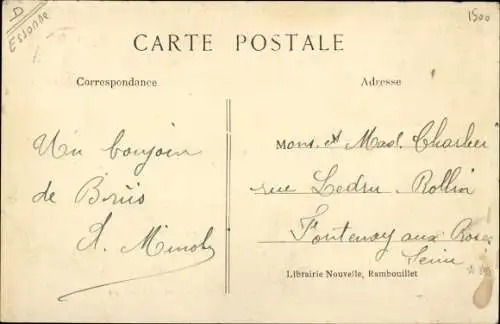 D
Essonne
1500
CARTE POSTALE
Correspondance
Adresse
Un bonjour
de Briis
Mons. et Mad. Charlier
rue Ledru-Rollin
Fontenay aux Roses
Seine
Librairie Nouvelle, Rambouillet